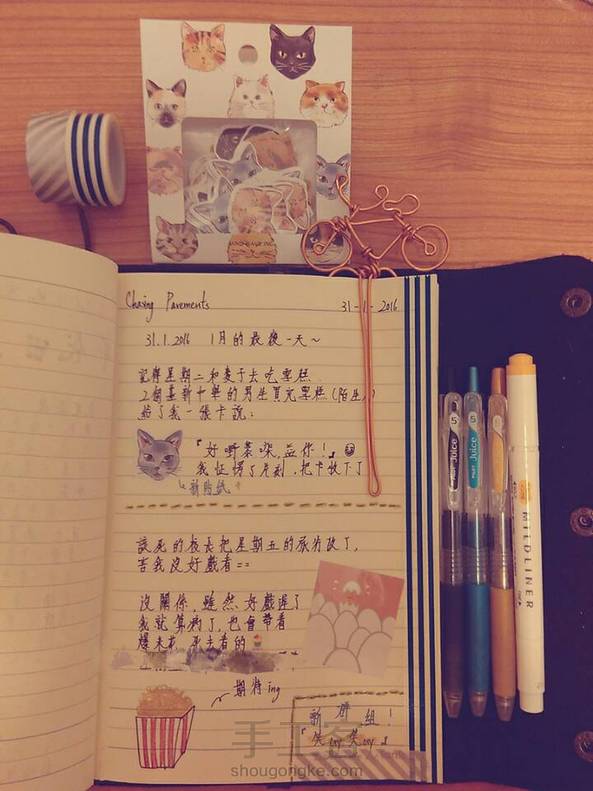 Chasing Pavements
31-1-2016
31.1.2016 1月的最後一天~
記得星期二和麥子去吃雪糕
2個基新中學的男生買完雪糕(陌生人)
給了我一張卡說:
『好嘢茶㗎,益你!』
我怔愣了片刻,把卡收下了
新貼紙
該死的校長把星期五的旅行改了,
害我沒好戲看==
沒關係,雖然好戲遲了
我就算病了,也會帶着
爆米花 來去看的
期待ing
新 群 組!
5 Juice
5 Juice
5 Juice
MILDLINER
手工客
shougongke.com